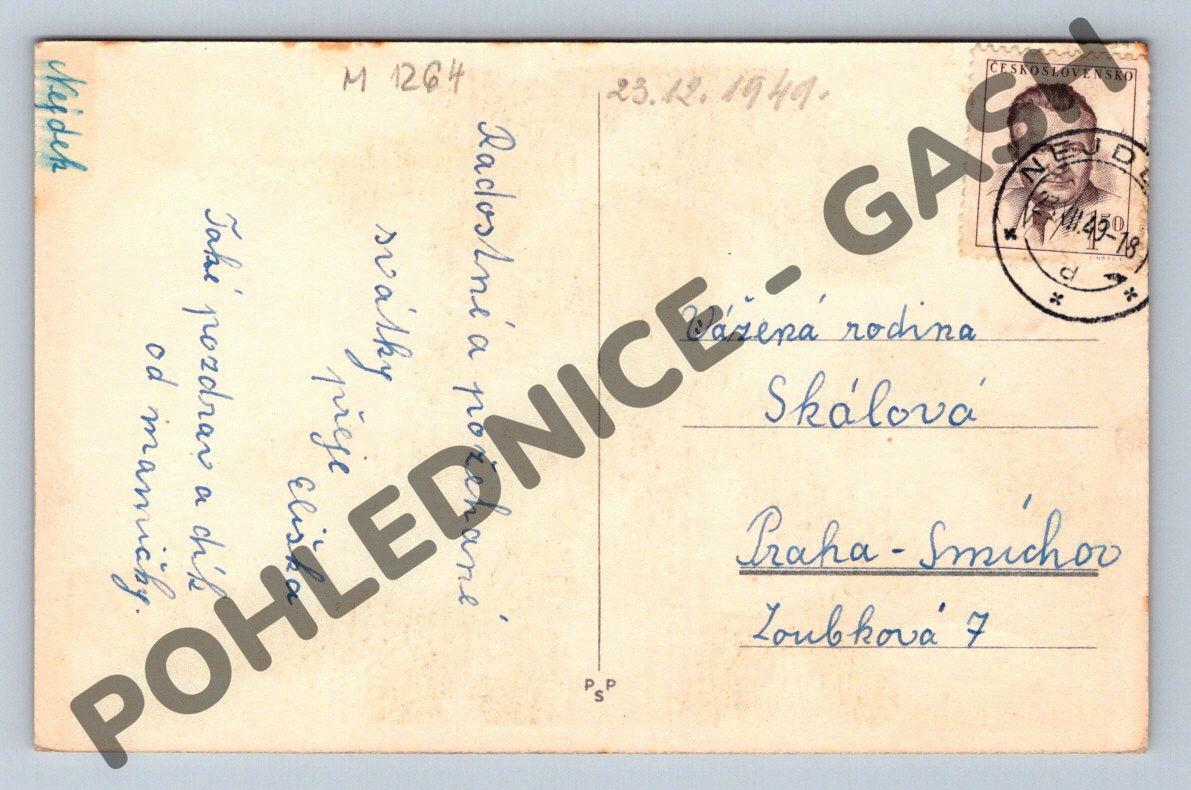 Nejdek
M 1264
23.12.1949.
Radostné a požehnané
svátky
přeje
Eliška
Také pozdrav a dík
od mamičky.
ČESKOSLOVENSKO
1.50
NEJDE
XII.49-18
d
Vážená rodina
Skálová
Praha - Smíchov
Zoubková 7
PSP
POHLEDNICE - GASH